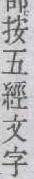 按五經文字